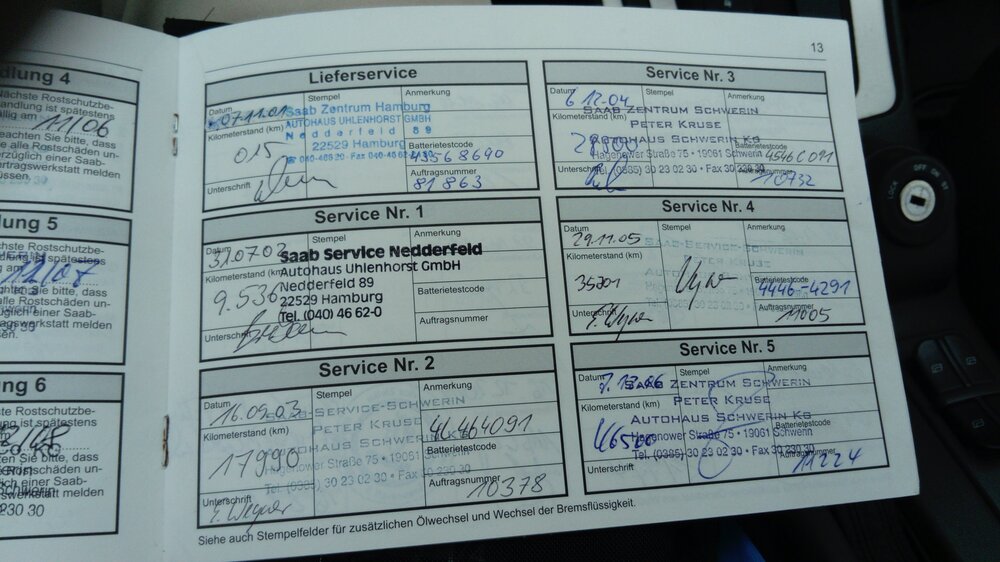 dlung 4
Nächste Rostschutzbe-
handlung ist spätestens
fällig am 11/06
Beachten Sie bitte, dass
alle Rostschäden un-
verzüglich einer Saab-
Vertragswerkstatt melden
müssen.
lung 5
chste Rostschutzbe-
ndlung ist spätestens
am 12/07
achten Sie bitte, dass
alle Rostschäden un-
züglich einer Saab-
tragswerkstatt melden
ssen.
ng 6
te Rostschutzbe-
ung ist spätestens
en Sie bitte, dass
Rostschäden un-
lich einer Saab-
swerkstatt melden
13
Lieferservice
Datum
07.11.01
Stempel
Anmerkung
Saab Zentrum Hamburg
AUTOHAUS UHLENHORST GMBH
Nedderfeld 89
22529 Hamburg
Kilometerstand (km)
015
Batterietestcode
43568690
Unterschrift
Auftragsnummer
81863
Service Nr. 1
Datum
31.07.02
Stempel
Anmerkung
Saab Service Nedderfeld
Autohaus Uhlenhorst GmbH
Nedderfeld 89
22529 Hamburg
Tel. (040) 46 62-0
Kilometerstand (km)
9.536
Batterietestcode
Unterschrift
Auftragsnummer
Service Nr. 2
Datum
16.09.03
Stempel
Anmerkung
SAAB-SERVICE-SCHWERIN
PETER KRUSE
AUTOHAUS SCHWERIN KG
Hagenower Straße 75 • 19061 Schwerin
Tel. (0385) 30 23 02 30 • Fax 30 230 30
Kilometerstand (km)
17990
Batterietestcode
Unterschrift
Auftragsnummer
10378
Service Nr. 3
Datum
6.12.04
Stempel
Anmerkung
SAAB ZENTRUM SCHWERIN
PETER KRUSE
AUTOHAUS SCHWERIN KG
Hagenower Straße 75 • 19061 Schwerin
Tel. (0385) 30 23 02 30 • Fax 30 230 30
Kilometerstand (km)
Batterietestcode
4546C091
Unterschrift
Auftragsnummer
10732
Service Nr. 4
Datum
29.11.05
Stempel
Anmerkung
SAAB-SERVICE-SCHWERIN
PETER KRUSE
Kilometerstand (km)
35201
Batterietestcode
4446-4291
Unterschrift
Auftragsnummer
11005
Service Nr. 5
Datum
7.12.06
Stempel
Anmerkung
SAAB ZENTRUM SCHWERIN
PETER KRUSE
AUTOHAUS SCHWERIN KG
Hagenower Straße 75 • 19061 Schwerin
Tel. (0385) 30 23 02 30 • Fax 30 230 30
Kilometerstand (km)
46540
Batterietestcode
Unterschrift
Auftragsnummer
11224
Siehe auch Stempelfelder für zusätzlichen Ölwechsel und Wechsel der Bremsflüssigkeit.
LOCK
OFF
ON